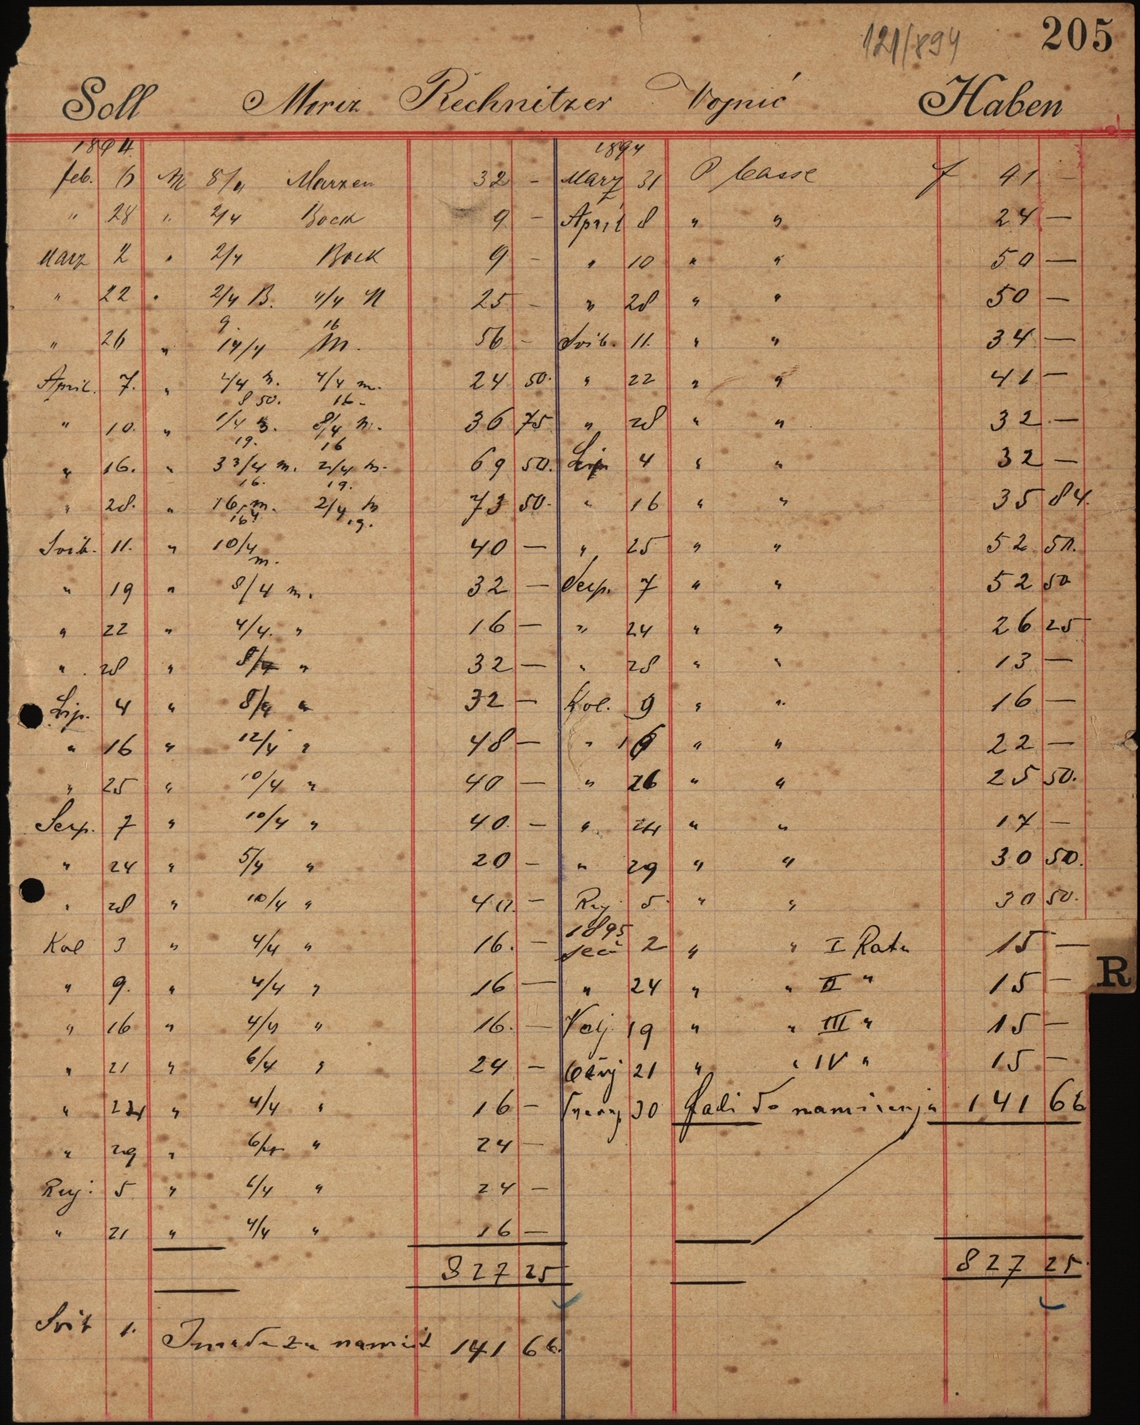 121/894
205
Soll Moriz Rechnitzer Vojnić Haben
1894 1894
feb. 6 M 8/4 Marzen 32 — März 31 P Casse f 41 —
" 28 " 2/4 Bock 9 — April 8 " " 24 —
März 2 " 2/4 Bock 9 — " 10 " " 50 —
" 22 " 2/4 B. 4/4 M 25 — " 28 " " 50 —
9. 16
" 26 " 14/4 M. 56 — Svib. 11. " " 34 —
April. 7. " 4/4 m. 24 50. " 22 " " 41 —
8 50. 16-
" 10. " 8/4 m. 36 75 " 28 " " 32 —
19. 16
" 16. " 3 3/4 m. 2/4 m. 69 50. Lip. 4 " " 32 —
16. 19.
" 28. " 16 m. 2/4 73 50. " 16 " " 35 84.
19.
Svib. 11. " 10/4 40 — " 25 " " 52 50.
m.
" 19 " 8/4 m. 32 — Serp. 7 " " 52 50
" 22 " 4/4. " 16 — " 24 " " 26 25
" 28 " 8/4 " 32 — " 28 " " 13 —
Lip. 4 " 8/4 " 32 — Kol. 9 " " 16 —
" 16 " 12/4 " 48 — " 16 " " 22 —
" 25 " 10/4 " 40 — " 26 " " 25 50.
Serp. 7 " 10/4 " 40. — " 24 " " 17 —
" 24 " 5/4 " 20 — " 29 " " 30 50.
" 28 " 10/4 " 40. — Ruj. 5. " " 30 50.
1895
Kol 3 " 4/4 " 16. — seč 2 " " I Rata 15 —
R
" 9. " 4/4 " 16 — " 24 " " II " 15 —
" 16 " 4/4 " 16. — Velj 19 " " III " 15 —
" 21 " 6/4 " 24 — Ožuj 21 " " IV " 15 —
" 24 " 4/4 " 16 — 30 fali do namirenja 141 66
" 29 " 6/4 " 24 —
Ruj: 5 " 6/4 " 24 —
" 21 " 4/4 " 16 —
827 25 827 25
Svib 1. 141 66.